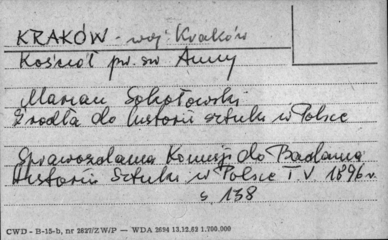 KRAKÓW - woj. Kraków
Kościół pw. św Anny
Marian Sokołowski
Źródła do historii sztuki w Polsce
Sprawozdania Komisji do Badania
Historii Sztuki w Polsce T. V 1896 r.
s 138
CWD - B-15-b, nr 2827/ZW/P — WDA 2694 13.12.62 1.700.000